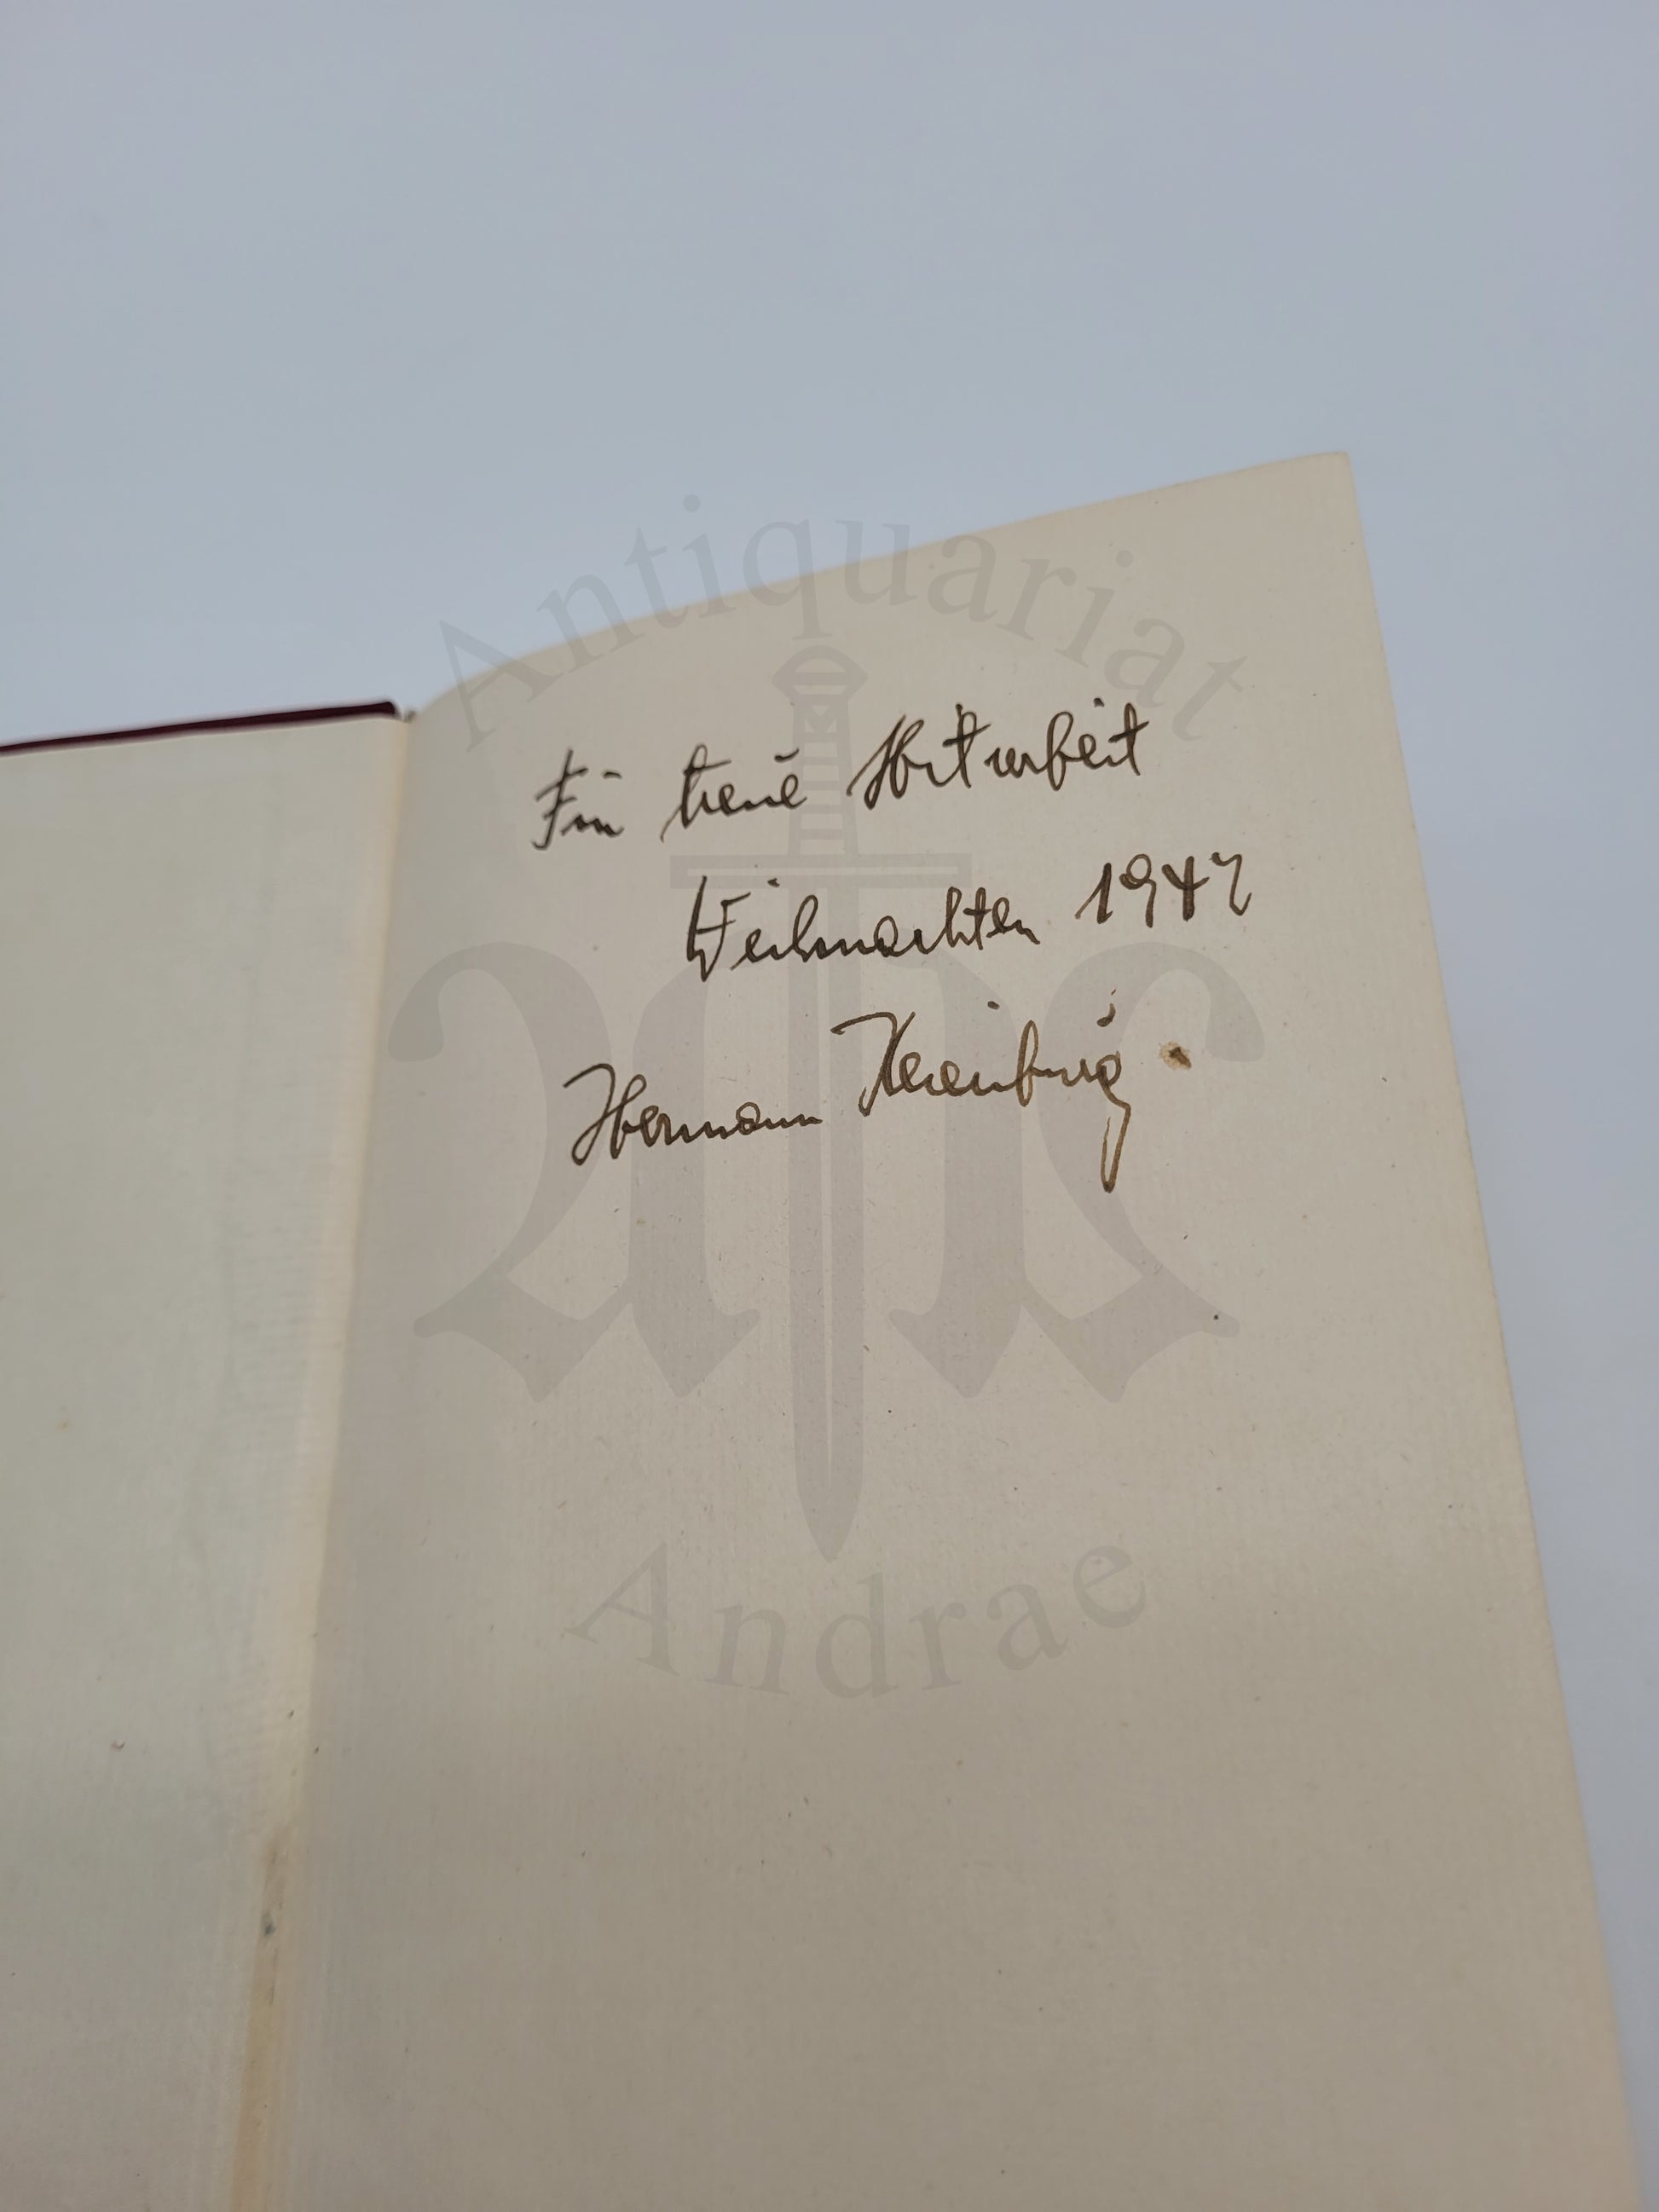 Antiquariat
Für treue Mitarbeit
Weihnachten 1942
Hermann
Andrae